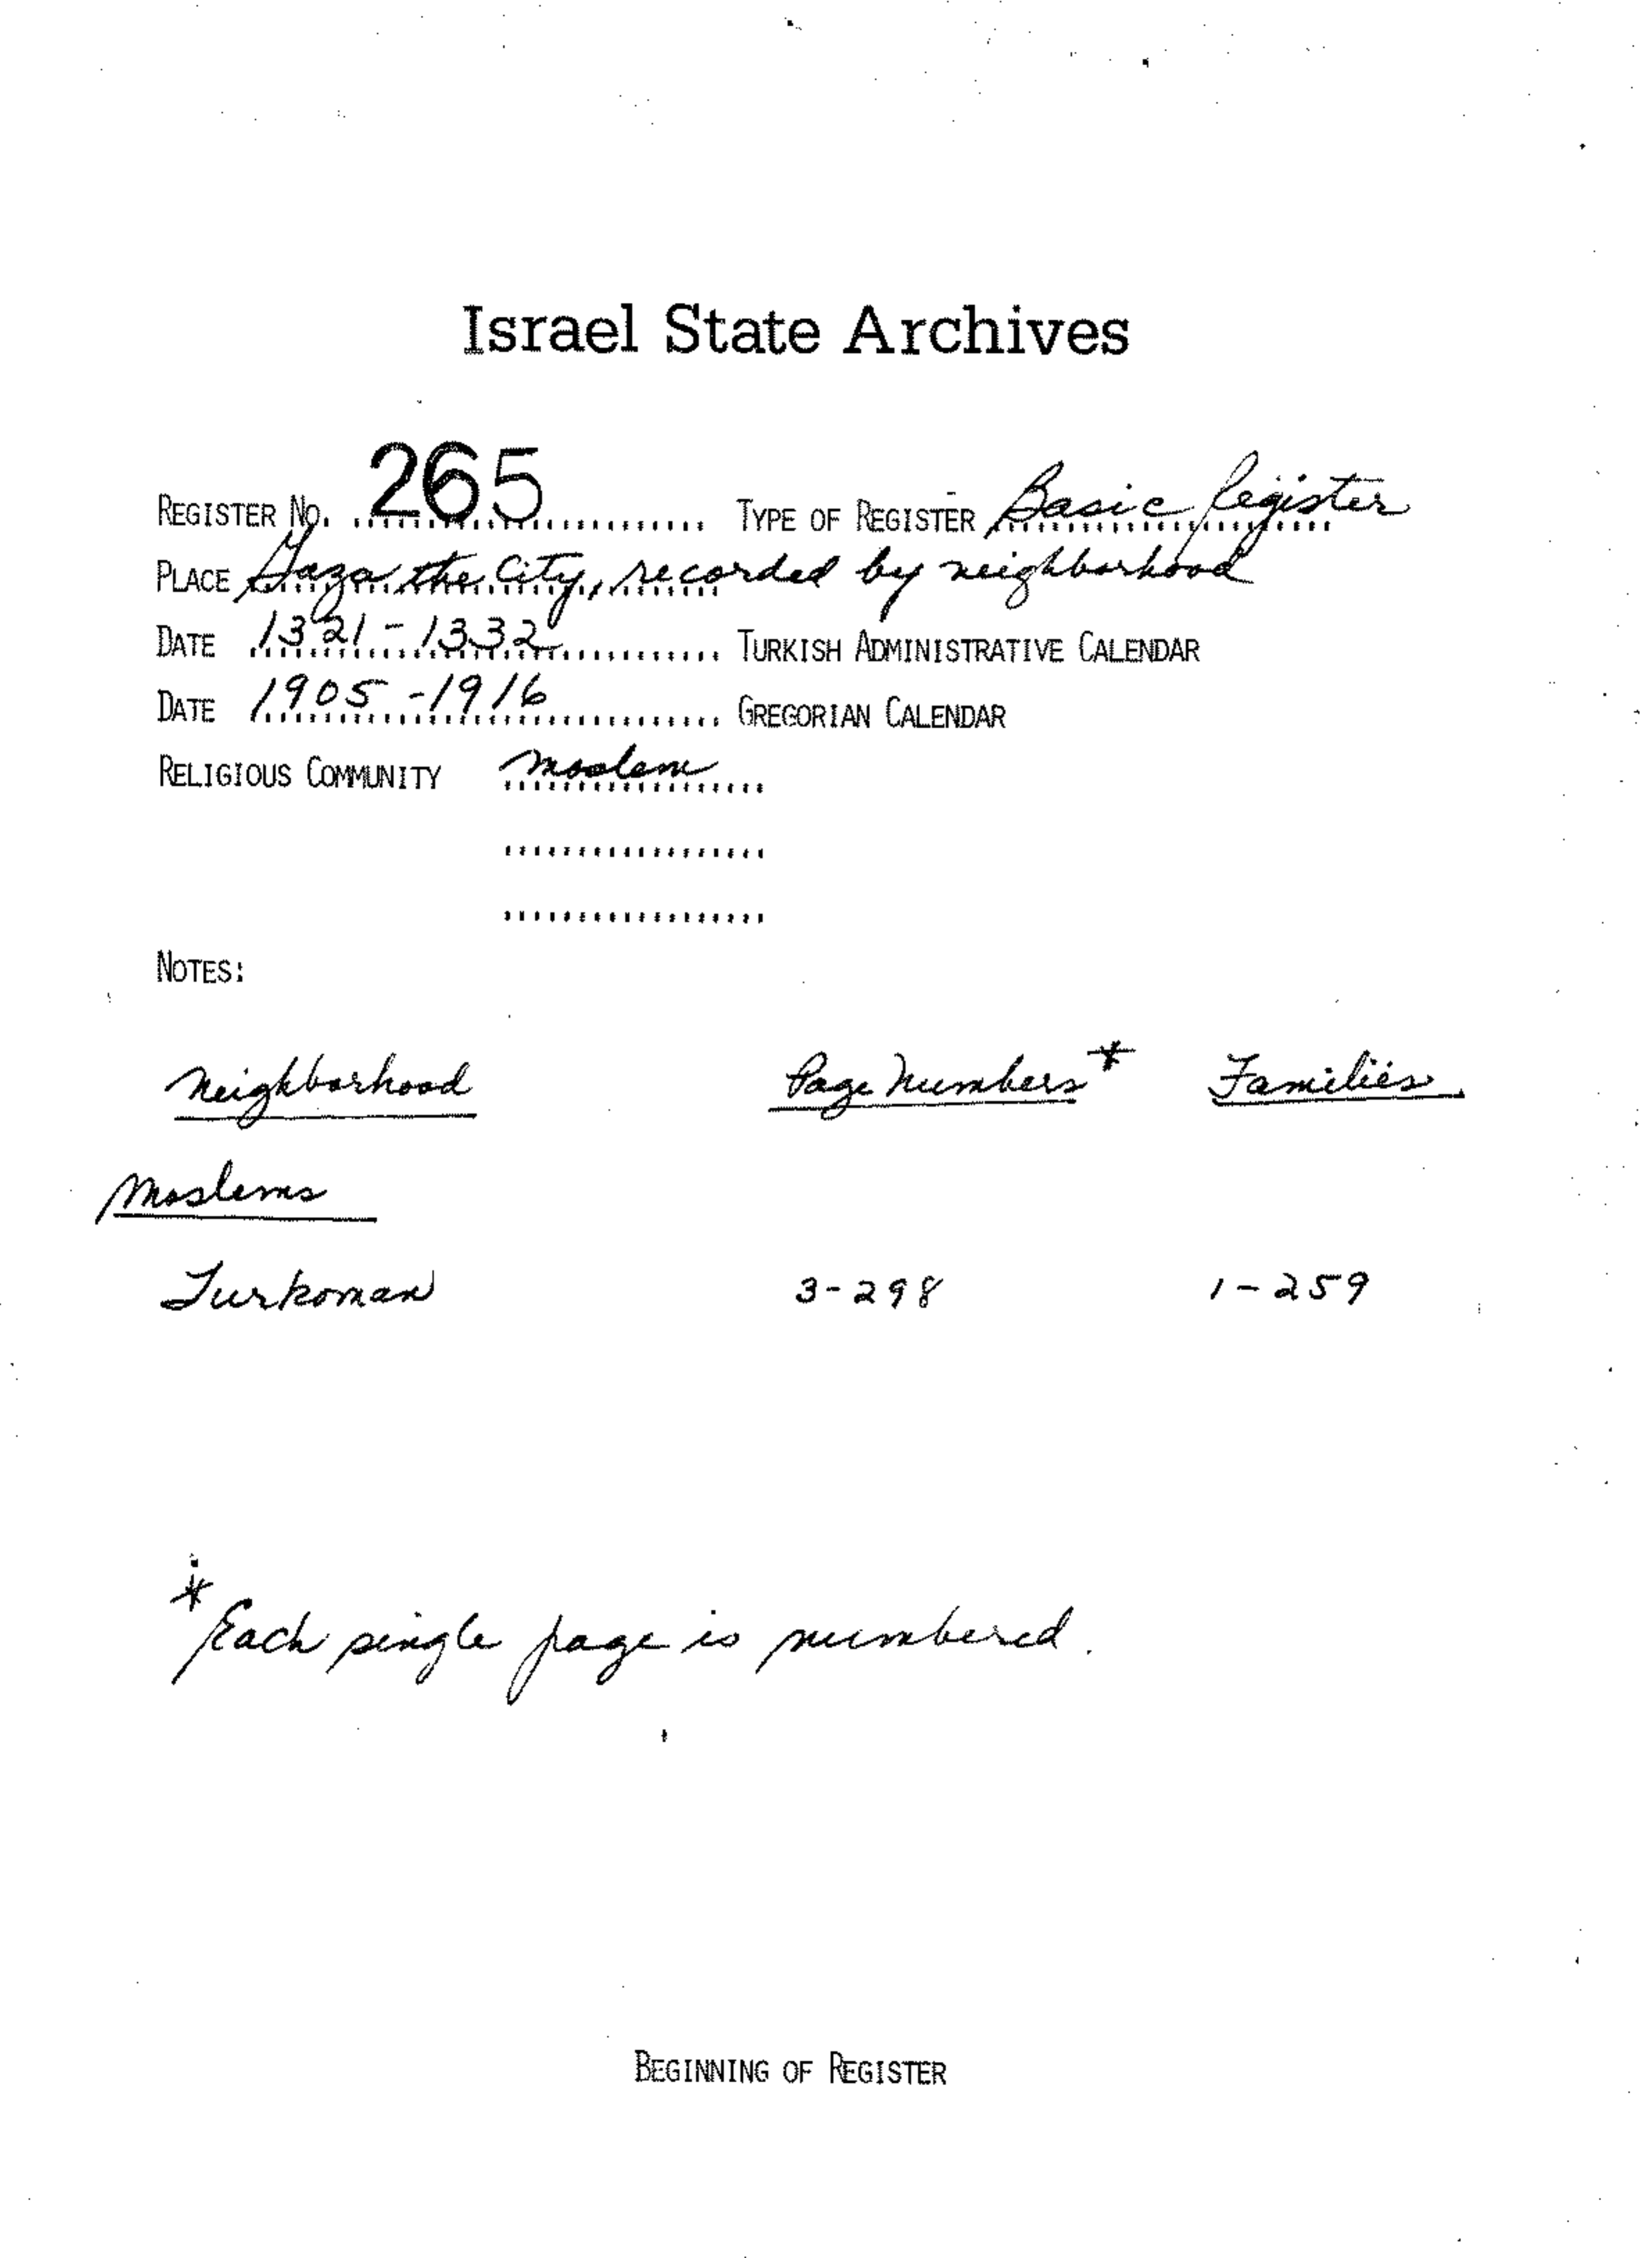 Israel State Archives
REGISTER NO. 265 TYPE OF REGISTER Basic Register
PLACE Gaza, the City, recorded by neighborhood
DATE 1321-1332 TURKISH ADMINISTRATIVE CALENDAR
DATE 1905-1916 GREGORIAN CALENDAR
RELIGIOUS COMMUNITY Moslem
NOTES:
Neighborhood Page Numbers* Families
Moslems
Turkoman 3-298 1-259
* Each single page is numbered.
BEGINNING OF REGISTER